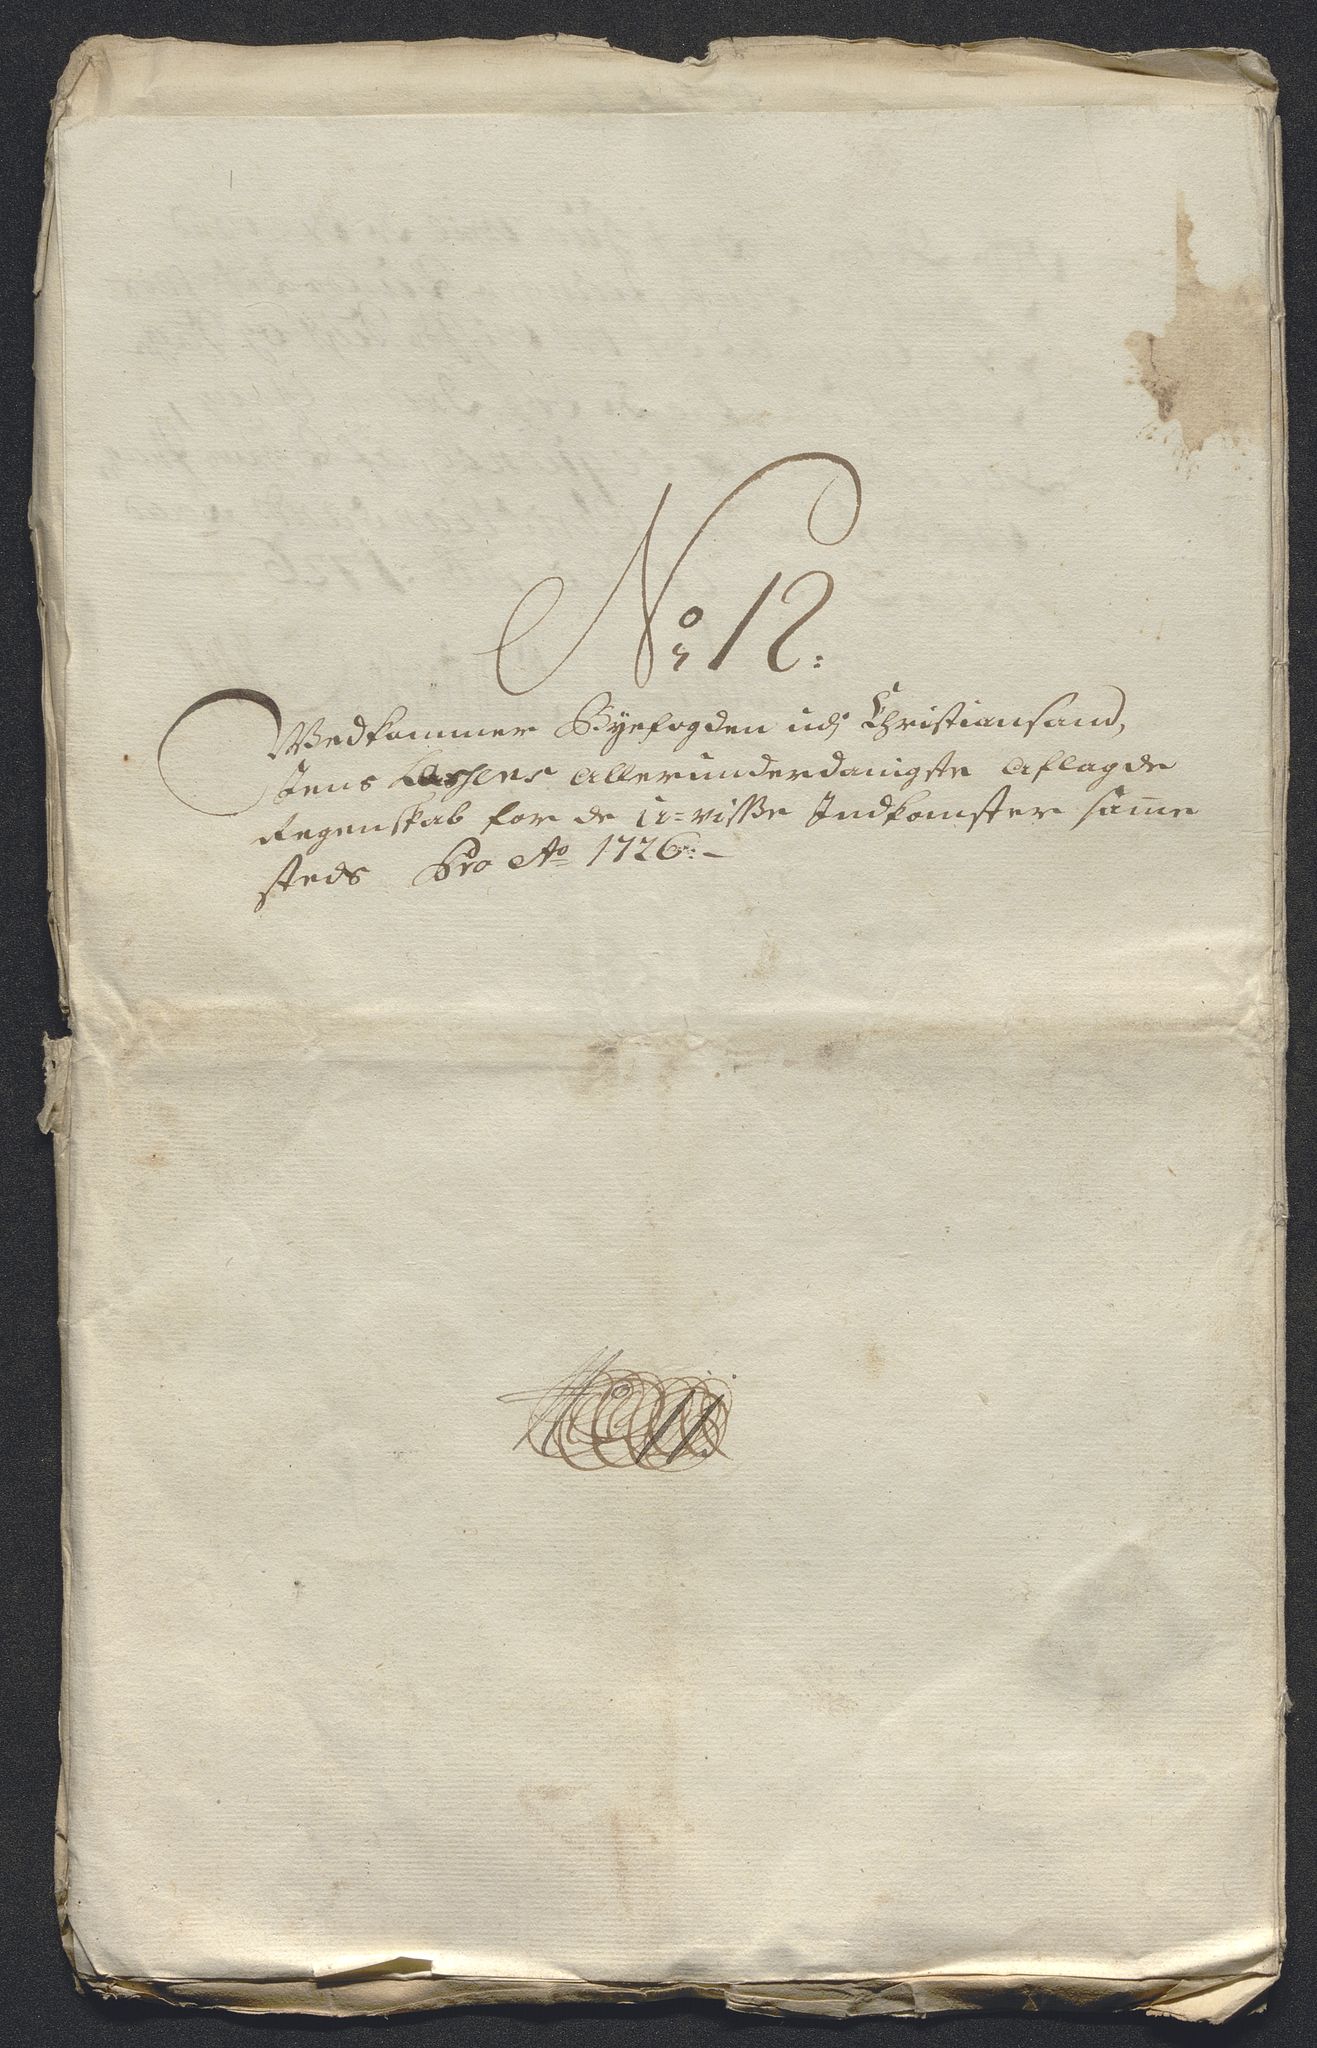 No 12:
Vedkommer Byefogden udj Christiansand,
Jens Allerunderdanigste Aflagde
Regenskab for de u=visse Indkomster samme
steds Pro Ao 1726:-
No 11.